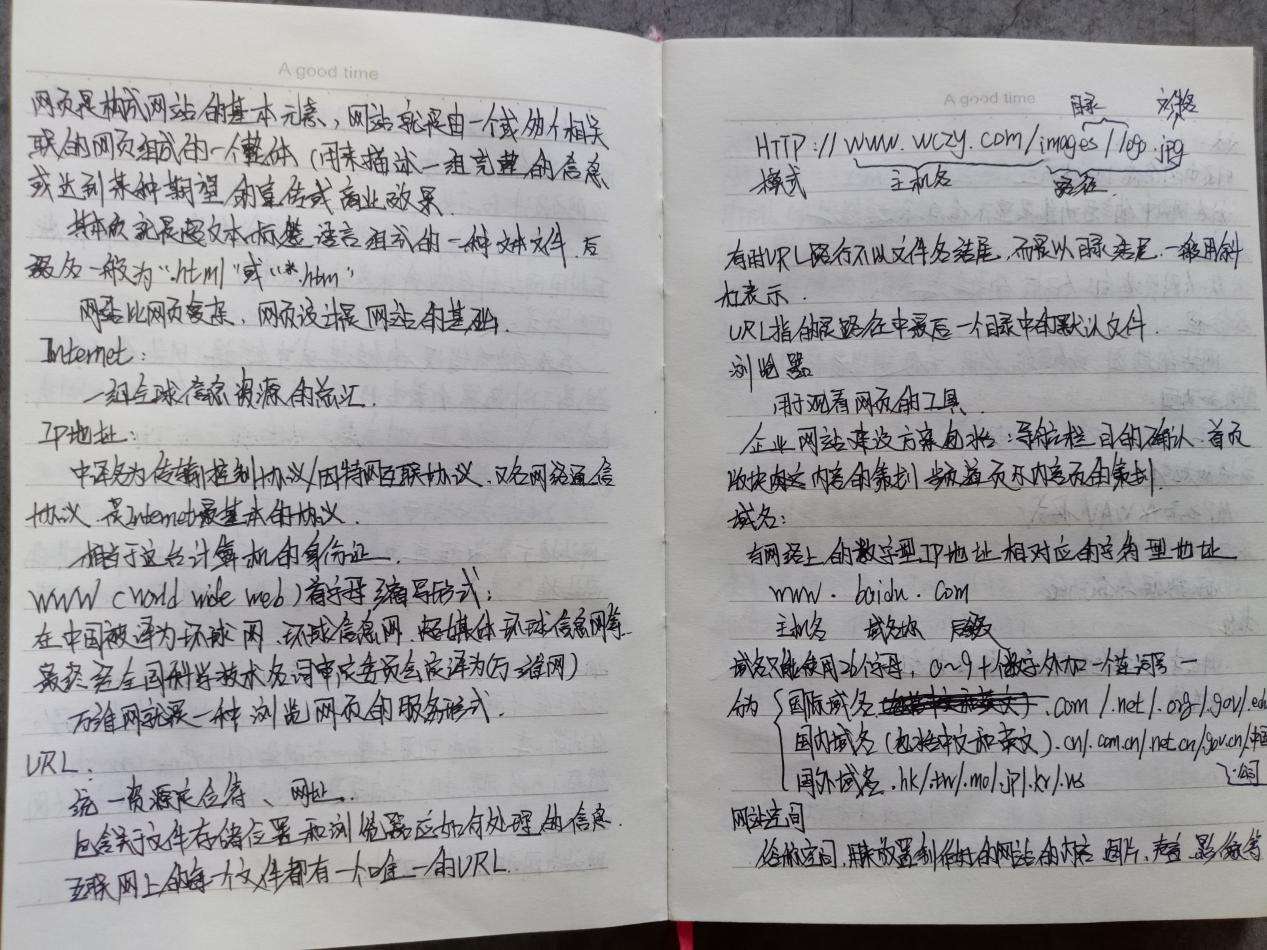 A good time
网页是构成网站的基本元素，网站就是由一个或多个相关
联的网页组成的一个整体（用来描述一组完整的信息
或达到某种期望的宣传或商业效果.
其本质就是超文本标签语言组成的一种文本文件，后
缀名一般为“.html”或“*.htm”
网站比网页复杂，网页设计是网站的基础.
Internet:
一组全球信息资源的总汇.
IP地址:
中译名为传输控制协议/因特网互联协议.又名网络通信
协议.是Internet最基本的协议.
相当于这台计算机的身份证.
WWW (World wide web)首字母缩写形式:
在中国被译为环球网.环球信息网.超媒体环球信息网等.
最终经全国科学技术名词审定委员会定译为(万维网)
万维网就是一种浏览网页的服务形式.
URL:
统一资源定位符、网址.
包含关于文件存储位置和浏览器应如何处理的信息.
互联网上的每一个文件都有一个唯一的URL.
A good time
目录 文件名
HTTP://www.wczy.com/images/logo.jpg
模式 主机名 路径
有时URL路径不以文件名结尾，而是以目录结尾.一般用斜
杠表示.
URL指的是路径中最后一个目录中的默认文件.
浏览器
用于观看网页的工具.
企业网站建设方案包括:导航栏目的确认.首页
版块内容的策划 页内容页的策划.
域名:
与网络上的数字型IP地址相对应的字符型地址
www.baidu.com
主机名 域名 后缀
域名只能使用26个字母，0~9十个数字外加一个连词号 一
分为 国际域名 .com/.net/.org/.gov/.edu
国内域名(包括中文和英文).cn/.com.cn/.net.cn/gov.cn/中国
.公司
国外域名.hk/.tw/.mo/.jp/.kr/.us
网站空间
空间，用来放置制作好的网站的内容 图片、声音 影像等